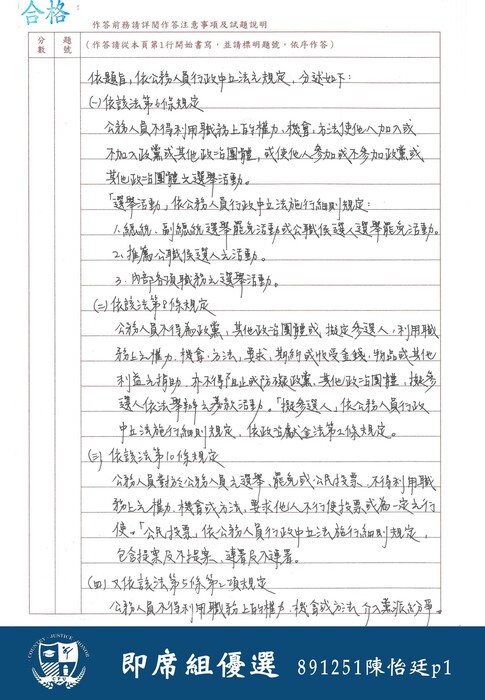 合格
作答前務請詳閱作答注意事項及試題說明
分數
題號
(作答請從本頁第1行開始書寫,並請標明題號,依序作答)
依題旨,依公務人員行政中立法之規定,分述如下:
(一)依該法第6條規定
公務人員不得利用職務上的權力、機會、方法使他人加入或
不加入政黨或其他政治團體,或使他人參加或不參加政黨或
其他政治團體之選舉活動。
「選舉活動」依公務人員行政中立法施行細則規定:
1. 總統、副總統選舉罷免活動或公職候選人選舉罷免活動。
2. 推薦公職候選人之活動。
3. 內部各項職務之選舉活動。
(二)依該法第8條規定
公務人員不得為政黨、其他政治團體或擬定參選人,利用職
務上之權力、機會、方法,要求、期約或收受金錢、物品或其他
利益之捐助,亦不得阻止或妨礙政黨、其他政治團體,擬參
選人依法舉辦之募款活動。「擬參選人,依公務人員行政
中立法施行細則規定,依政治獻金法第2條規定。
(三)依該法第10條規定
公務人員對於公務人員之選舉、罷免或公民投票,不得利用職
務上之權力、機會或方法,要求他人不行使投票或為一定之行
使。「公民投票,依公務人員行政中立法施行細則規定,
包含提案及不提案、連署及不連署。
(四)又依該法第5條第2項規定
公務人員不得利用職務上的權力、機會或方法介入黨派紛爭。
COUNTY · JUSTICE · HONOR
即席組優選 891251陳怡廷p1